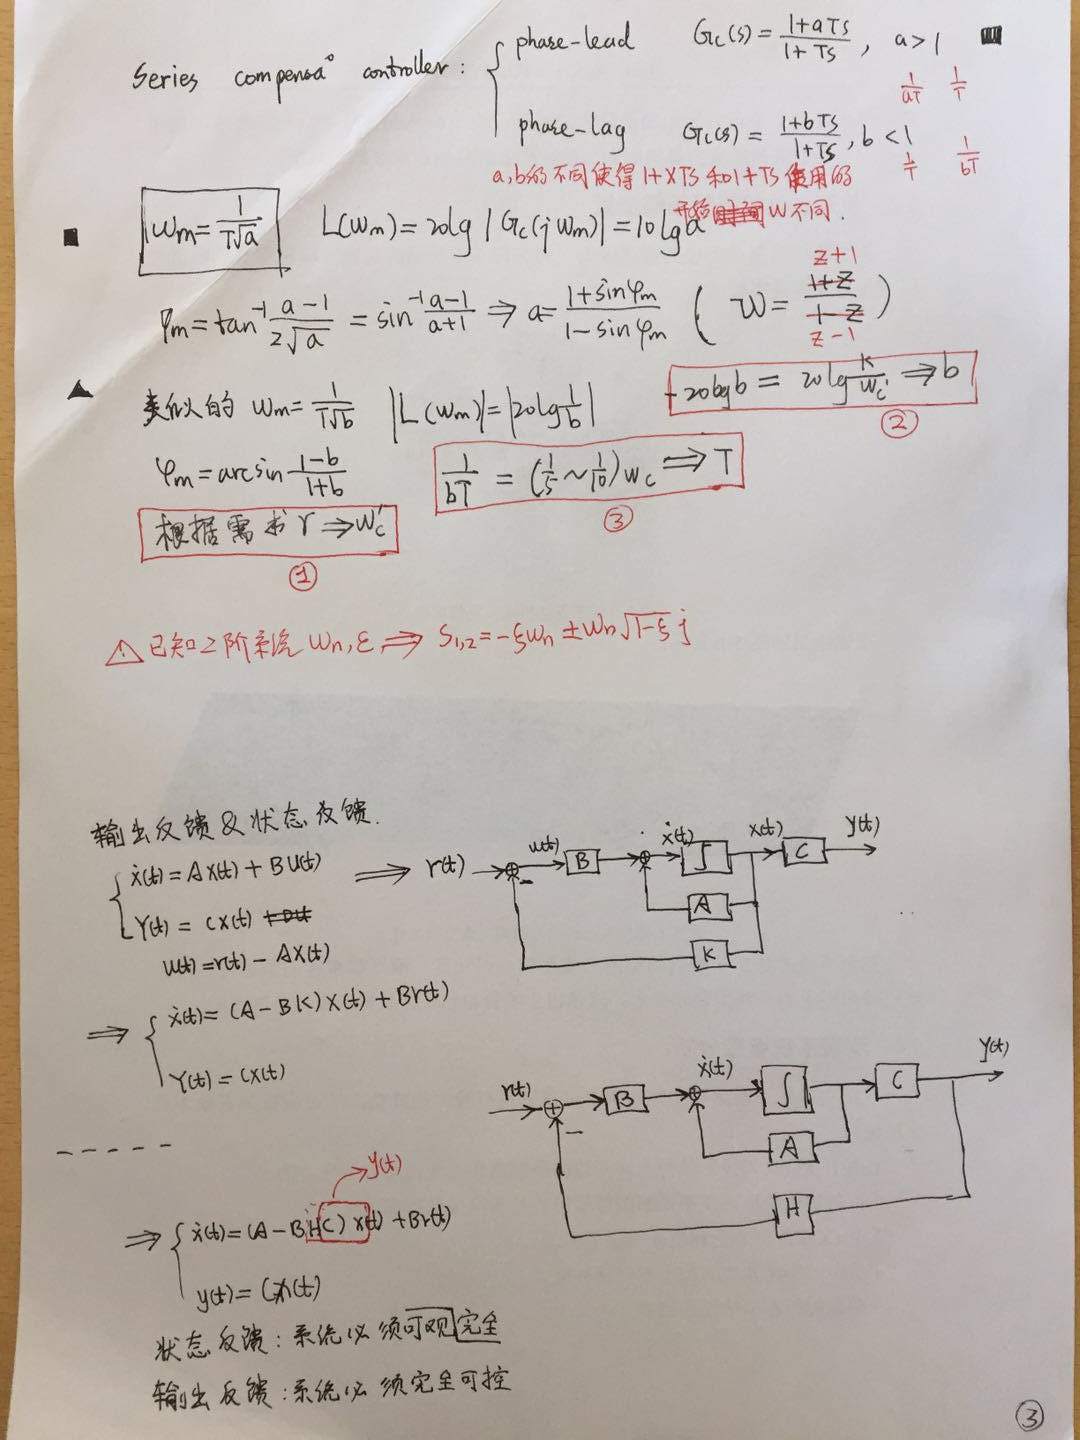 Series compensa° controller:
phase-lead Gc(s) = (1+aTs)/(1+Ts), a > 1
1/aT 1/T
phase-lag Gc(s) = (1+bTs)/(1+Ts), b < 1
1/T 1/bT
a,b的不同使得1+XTs和1+Ts使用的
开始 W不同.
Wm = 1/(T√a) L(Wm) = 20lg |Gc(jWm)| = 10lga
φm = tan⁻¹ (a-1)/(2√a) = sin⁻¹ (a-1)/(a+1) ⇒ a = (1+sinφm)/(1-sinφm) ( W = (1+z)/(1-z) )
z+1
z-1
类似的 Wm = 1/(T√b) |L(Wm)| = |20lg 1/b| -20lgb = 20lg K/Wc' ⇒ b
②
φm = arcsin (1-b)/(1+b) 1/(bT) = (1/5 ~ 1/10) Wc ⇒ T
③
根据需求 r ⇒ Wc'
①
⚠ 已知2阶系统 Wn, ξ ⇒ S1,2 = -ξWn ± Wn√(1-ξ) j
输出反馈 & 状态反馈.
ẋ(t) = AX(t) + BU(t) ⇒
Y(t) = CX(t) + Du
u(t) = r(t) - AX(t)
r(t) - u(t) B ẋ(t) ∫ x(t) C y(t)
A
K
⇒ ẋ(t) = (A - BK) X(t) + Br(t)
Y(t) = CX(t)
r(t) - B ẋ(t) ∫ C y(t)
A
H
y(t)
⇒ ẋ(t) = (A - BHC) x(t) + Br(t)
y(t) = Cx(t)
状态反馈:系统必须可观完全
输出反馈:系统必须完全可控
③